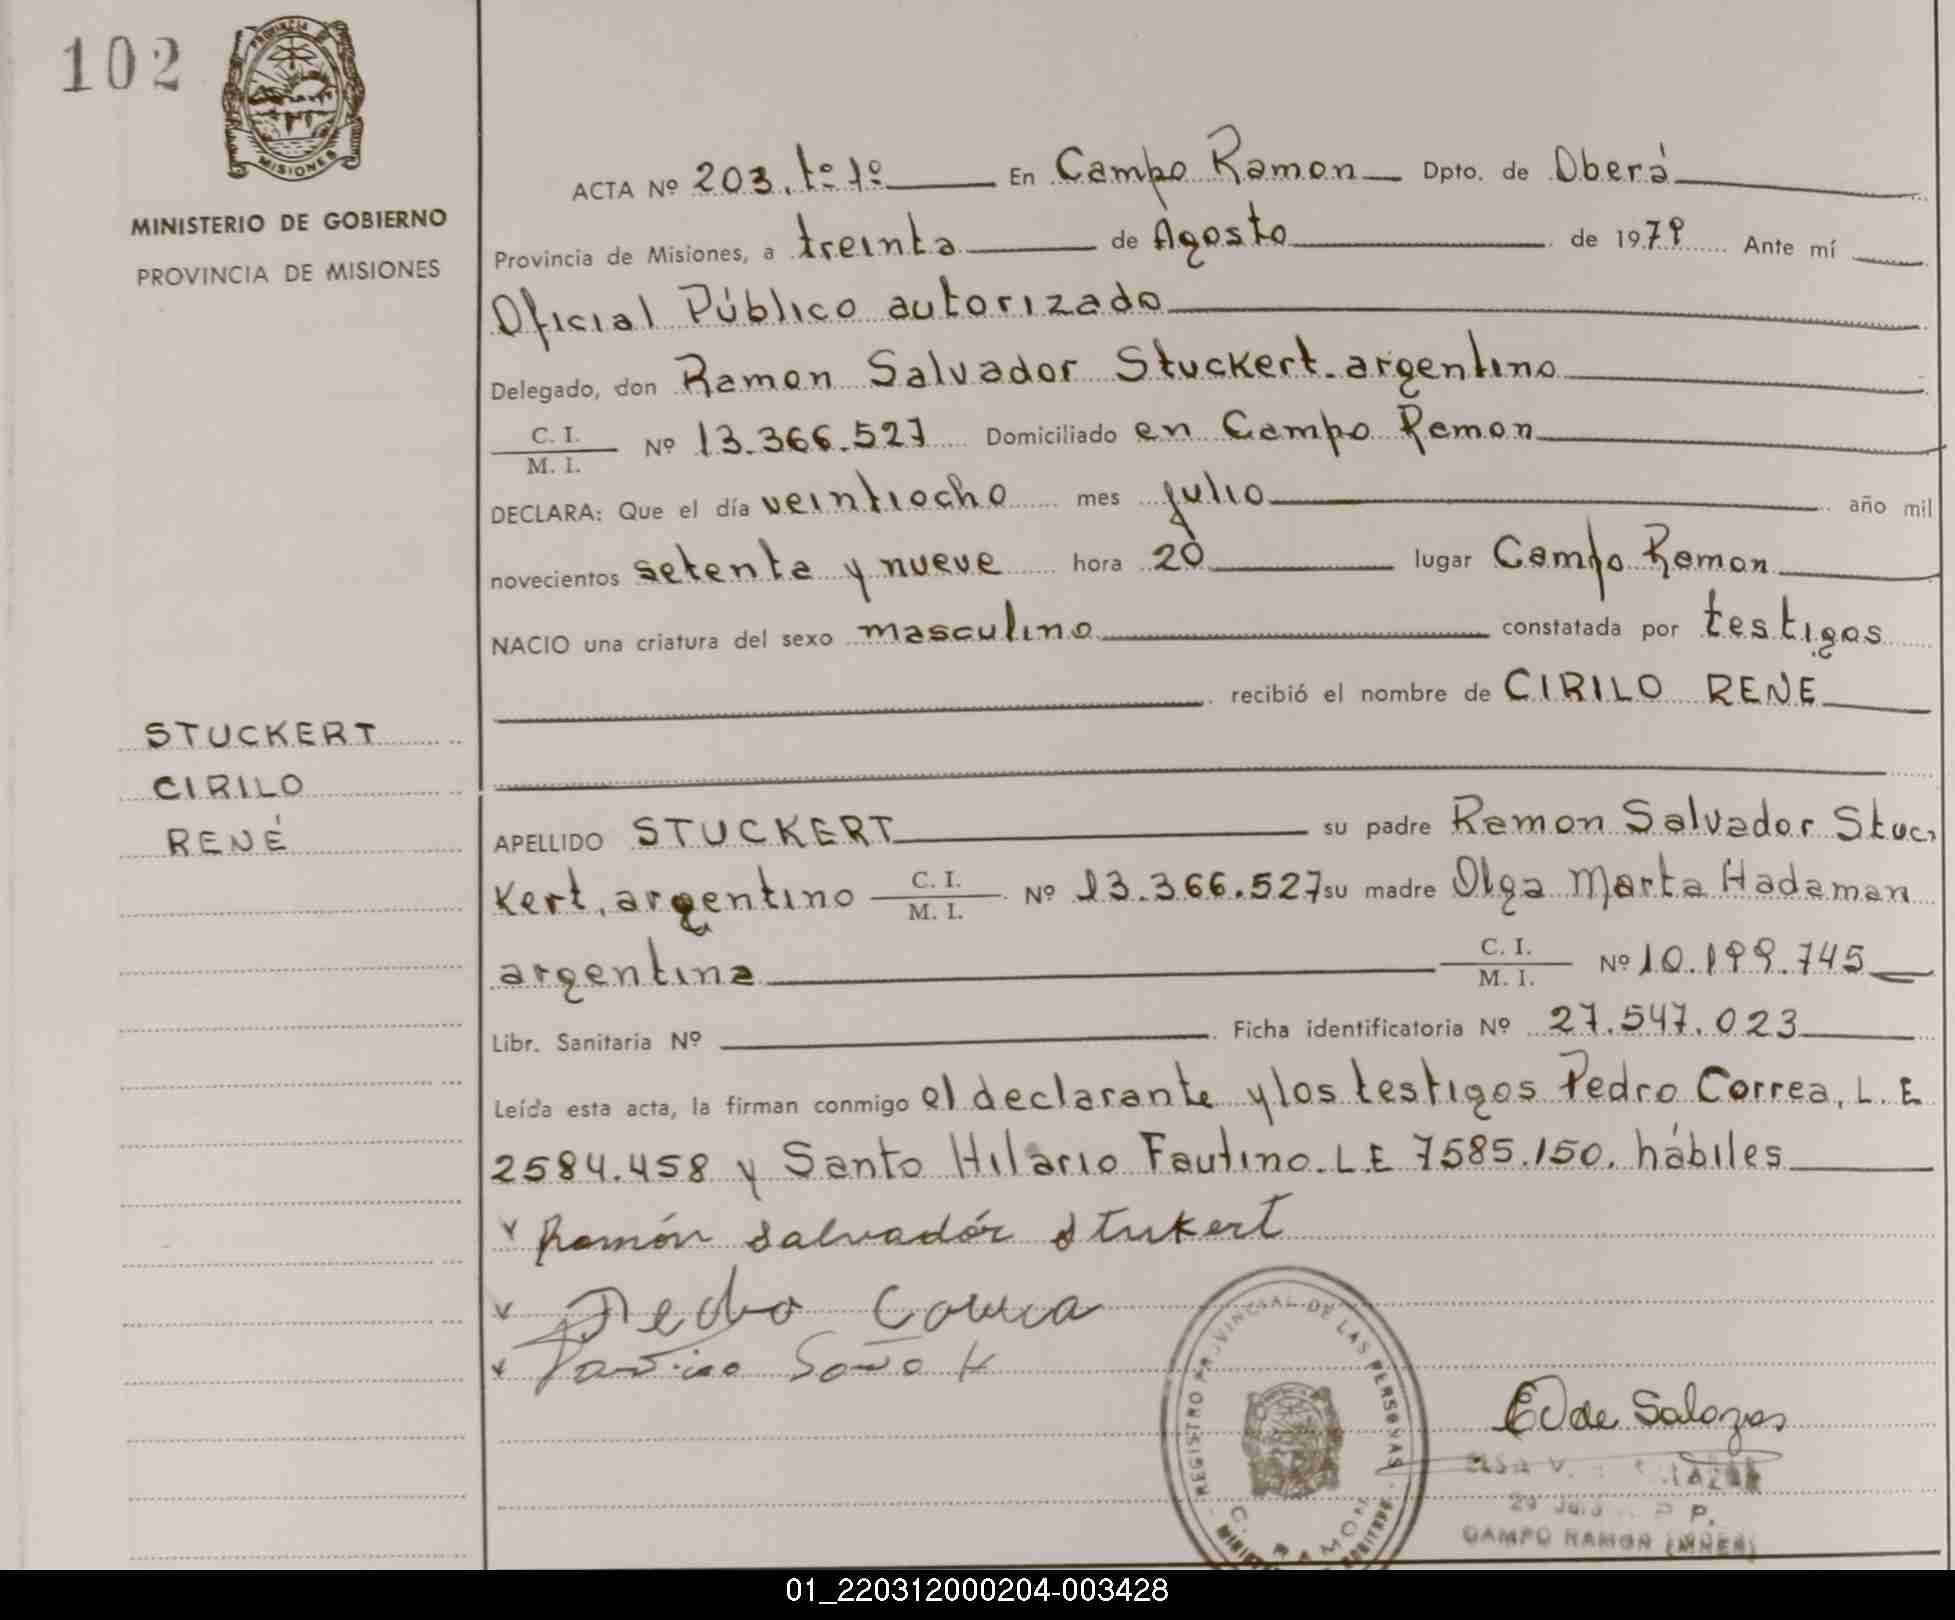 102
PROVINCIA DE
MISIONES
MINISTERIO DE GOBIERNO
PROVINCIA DE MISIONES
ACTA Nº 203. tº 1º En Campo Ramon Dpto. de Oberá
Provincia de Misiones, a treinta de Agosto de 1979 Ante mí
Oficial Público autorizado
Delegado, don Ramon Salvador Stuckert. argentino
C. I.
M. I. Nº 13.366.527 Domiciliado en Campo Ramon
DECLARA: Que el día veintiocho mes julio año mil
novecientos setenta y nueve hora 20 lugar Campo Ramon
NACIO una criatura del sexo masculino constatada por testigos
recibió el nombre de CIRILO RENE
STUCKERT
CIRILO
RENÉ
APELLIDO STUCKERT su padre Ramon Salvador Stuc
Kert, argentino C. I. M. I. Nº 13.366.527 su madre Olga Marta Hadaman
argentina C. I. M. I. Nº 10.199.745
Libr. Sanitaria Nº Ficha identificatoria Nº 27.547.023
Leída esta acta, la firman conmigo el declarante y los testigos Pedro Correa, L. E
2584.458 y Santo Hilario Fautino. L.E 7585.150. hábiles
Ramón Salvadór Stukert
Pedro Correa
REGISTRO PROVINCIAL DE LAS PERSONAS
C. RAMON
CAMPO RAMON
01_220312000204-003428